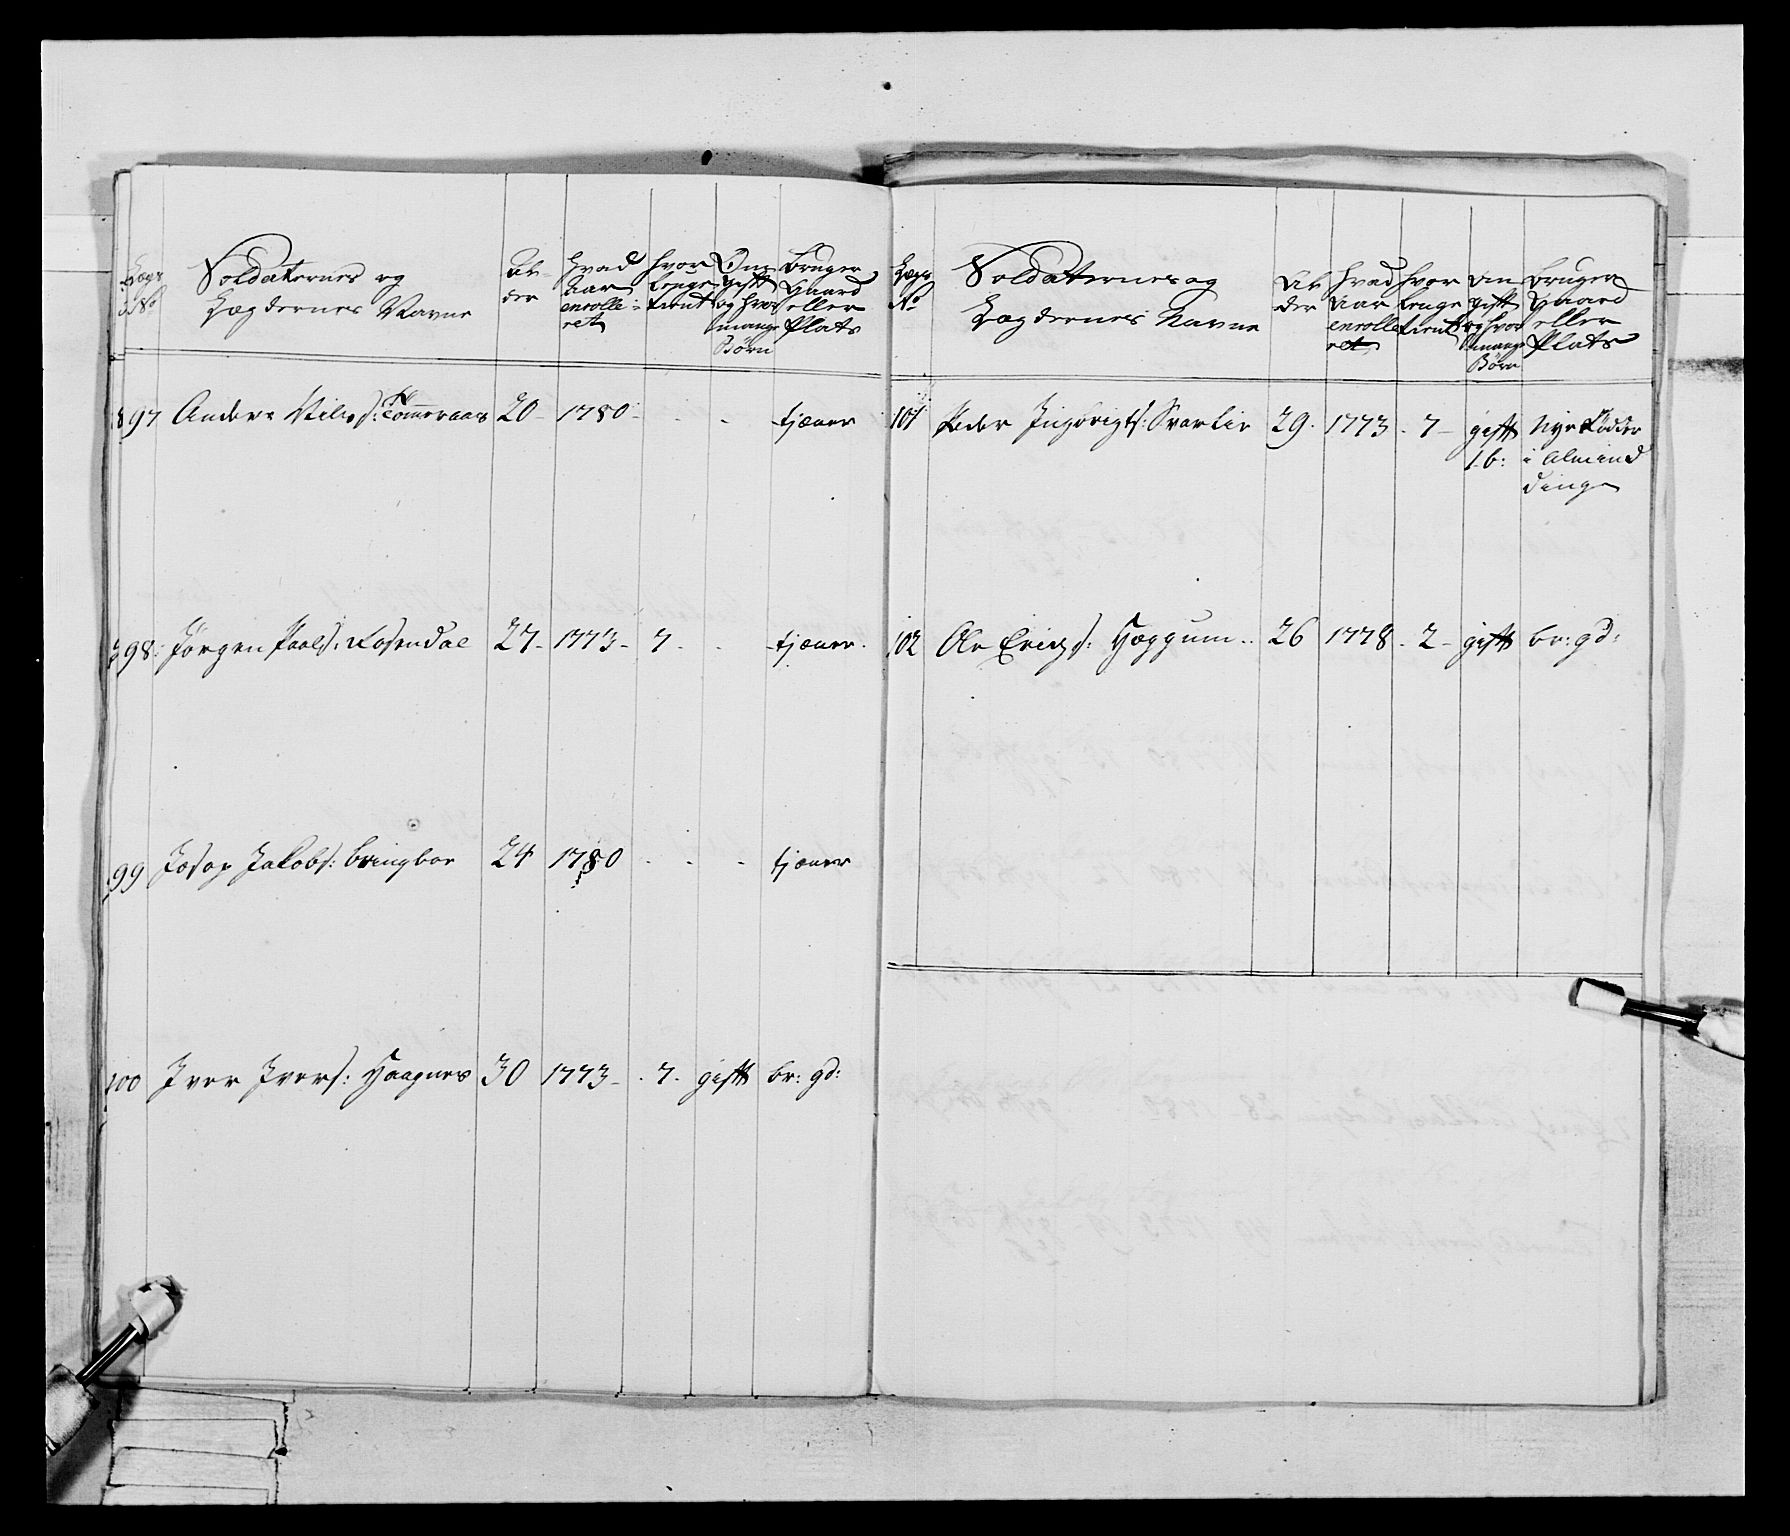 Lægs No
Soldatternes og
Lægdernes Navne
Al-
der
hvad
Aar
enrolle-
ret
hvor
lenge
tient
Om
gift
og hvor
mange
Børn
Bruger
Gaard
eller
Plats
97 Anders Nils: Tømmeraas 20 1780 - - - tjæner
98 Jørgen Paals: Rosendal 27 - 1773 - 7 - - tjæner
99 Josap Jakobs: Bringbor 24 1780 - - - tjæner
100 Iver Ivers: Haagnes 30 1773 - 7 - gift br: gd:
Lægs
No
Soldatternes og
Lægdernes Navne
Al-
der
hvad
Aar
enrolle
ret
hvor
lenge
tient
Om
gift
og hvor
mange
Børn
Bruger
Gaard
eller
Plats
101 Peder Ingbrigts: Svarlie 29 - 1773 - 7 - gift Nye Rødder
1 b: i Almind
dinge
102 Ole Erichs: Hoggum 26 1778 - 2 - gift br: gd: